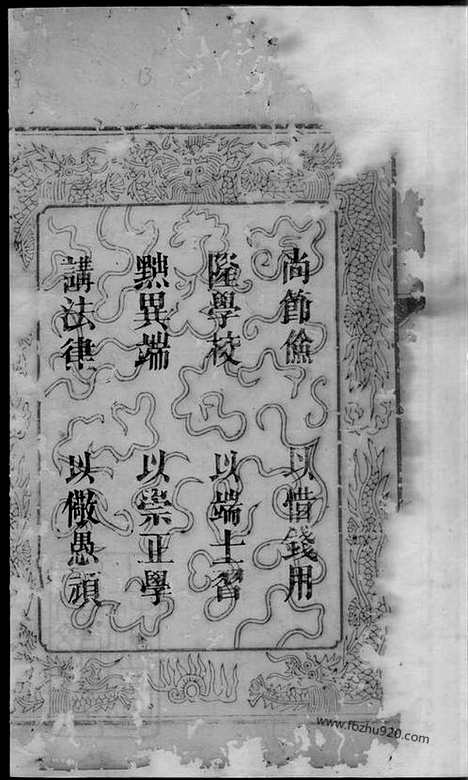 尚節儉　以惜錢用
隆學校　以端士習
黜異端　以崇正學
講法律　以儆愚頑
13
www.fbzhu920.com